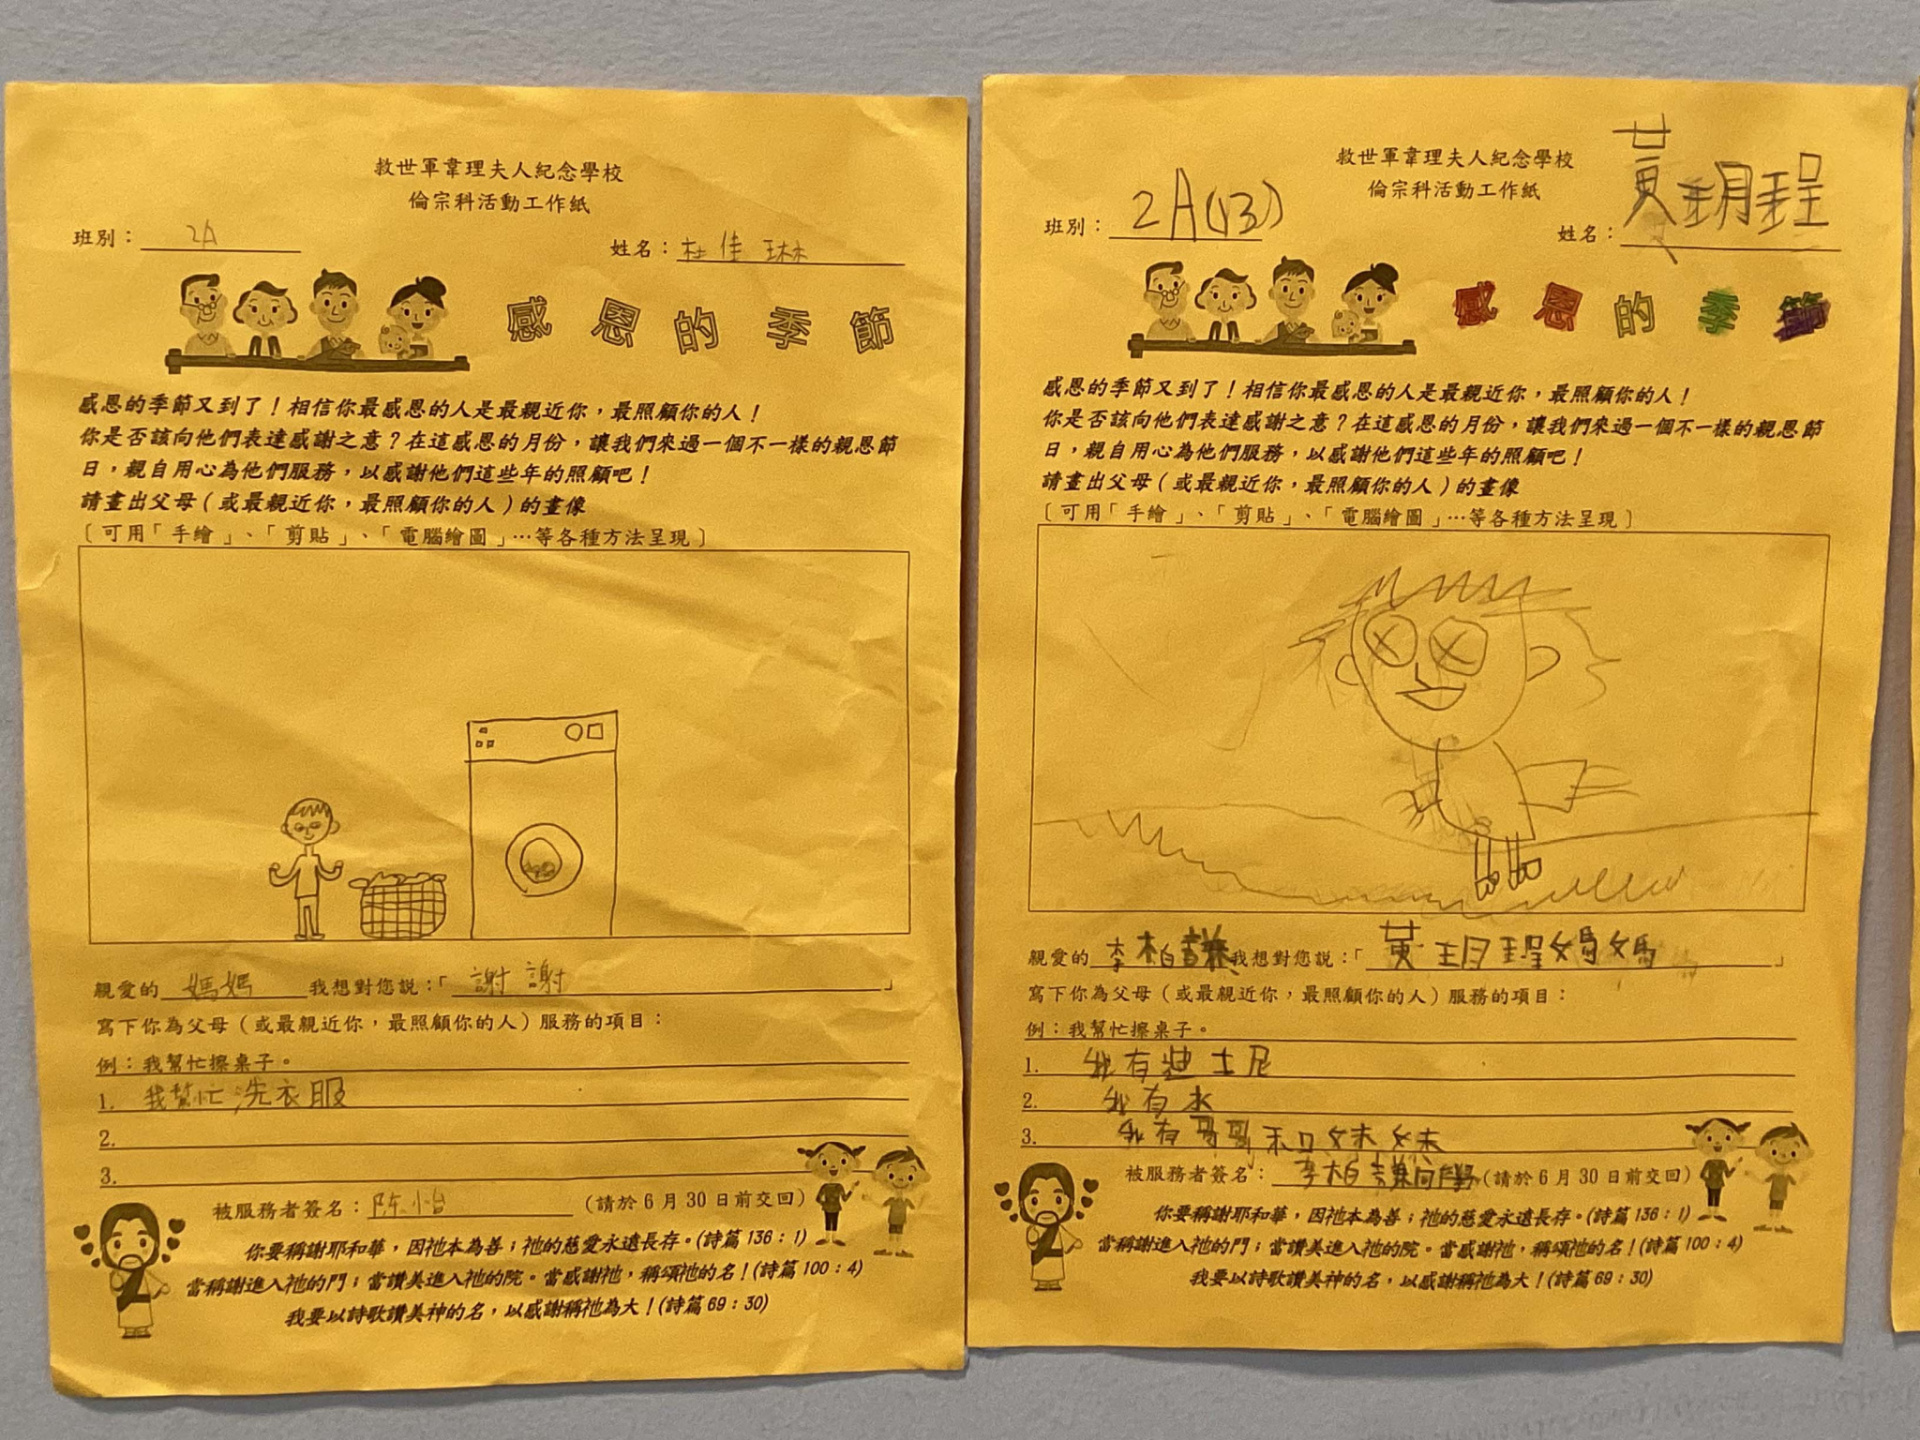 救世軍韋理夫人紀念學校
倫宗科活動工作紙
班別： 2A 姓名： 杜佳琳
感恩的季節
感恩的季節又到了！相信你最感恩的人是最親近你，最照顧你的人！
你是否該向他們表達感謝之意？在這感恩的月份，讓我們來過一個不一樣的親恩節
日，親自用心為他們服務，以感謝他們這些年的照顧吧！
請畫出父母（或最親近你，最照顧你的人）的畫像
〔可用「手繪」、「剪貼」、「電腦繪圖」…等各種方法呈現〕
親愛的 媽媽 我想對您說：「 謝謝 」
寫下你為父母（或最親近你，最照顧你的人）服務的項目：
例：我幫忙擦桌子。
1. 我幫忙洗衣服
2.
3.
被服務者簽名： 陈怡 (請於6月30日前交回)
你要稱謝耶和華，因祂本為善；祂的慈愛永遠長存。(詩篇136：1)
當稱謝進入祂的門；當讚美進入祂的院。當感謝祂，稱頌祂的名！(詩篇100：4)
我要以詩歌讚美神的名，以感謝稱祂為大！(詩篇69：30)
救世軍韋理夫人紀念學校
倫宗科活動工作紙
班別： 2A(13) 姓名： 黃玥程
感恩的季節
感恩的季節又到了！相信你最感恩的人是最親近你，最照顧你的人！
你是否該向他們表達感謝之意？在這感恩的月份，讓我們來過一個不一樣的親恩節
日，親自用心為他們服務，以感謝他們這些年的照顧吧！
請畫出父母（或最親近你，最照顧你的人）的畫像
〔可用「手繪」、「剪貼」、「電腦繪圖」…等各種方法呈現〕
親愛的 李柏謙 我想對您說：「 黃玥程媽媽 」
寫下你為父母（或最親近你，最照顧你的人）服務的項目：
例：我幫忙擦桌子。
1. 我有迪士尼
2. 我有水
3. 我有哥哥和妹妹
被服務者簽名： 李柏謙同學 (請於6月30日前交回)
你要稱謝耶和華，因祂本為善；祂的慈愛永遠長存。(詩篇136：1)
當稱謝進入祂的門；當讚美進入祂的院。當感謝祂，稱頌祂的名！(詩篇100：4)
我要以詩歌讚美神的名，以感謝稱祂為大！(詩篇69：30)